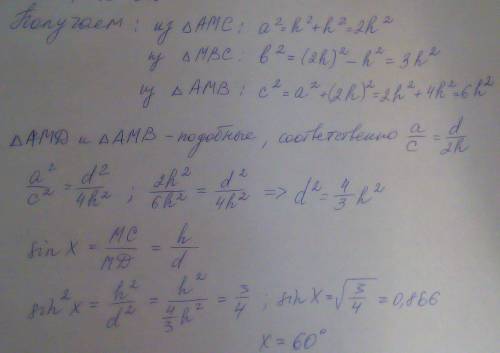 Получаем: из △AMC: a² = h² + h² = 2h²
из △MBC: b² = (2h)² - h² = 3h²
из △AMB: c² = a² + (2h)² = 2h² + 4h² = 6h²
△AMD и △AMB - подобные, соответственно a/c = d/2h
a²/c² = d²/4h² ; 2h²/6h² = d²/4h² => d² = 4/3 h²
sin X = MC/MD = h/d
sin² X = h²/d² = h²/(4/3 h²) = 3/4 ; sin X = √(3/4) = 0,866
X = 60°